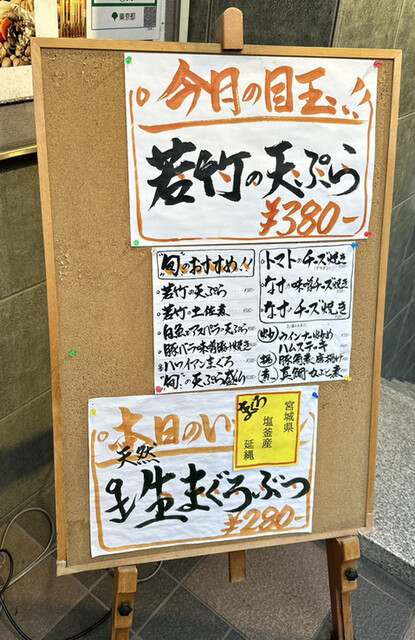 東京都
今月の目玉!!
若竹の天ぷら
¥380-
"旬"のおすすめ!!
若竹の天ぷら
若竹の土佐煮
白魚とアスパラの天ぷら
豚バラ味噌漬け焼き
ハワイアンまぐろ
"旬"の天ぷら盛り
トマトのチーズ焼き
なすの味噌チーズ焼き
なすのチーズ焼き
ウインナー炒め
ハムステーキ
豚角煮唐揚げ
真鯛かぶと煮
本日のい
宮城県
塩釜産
延縄
天然
生まぐろぶつ
¥280-